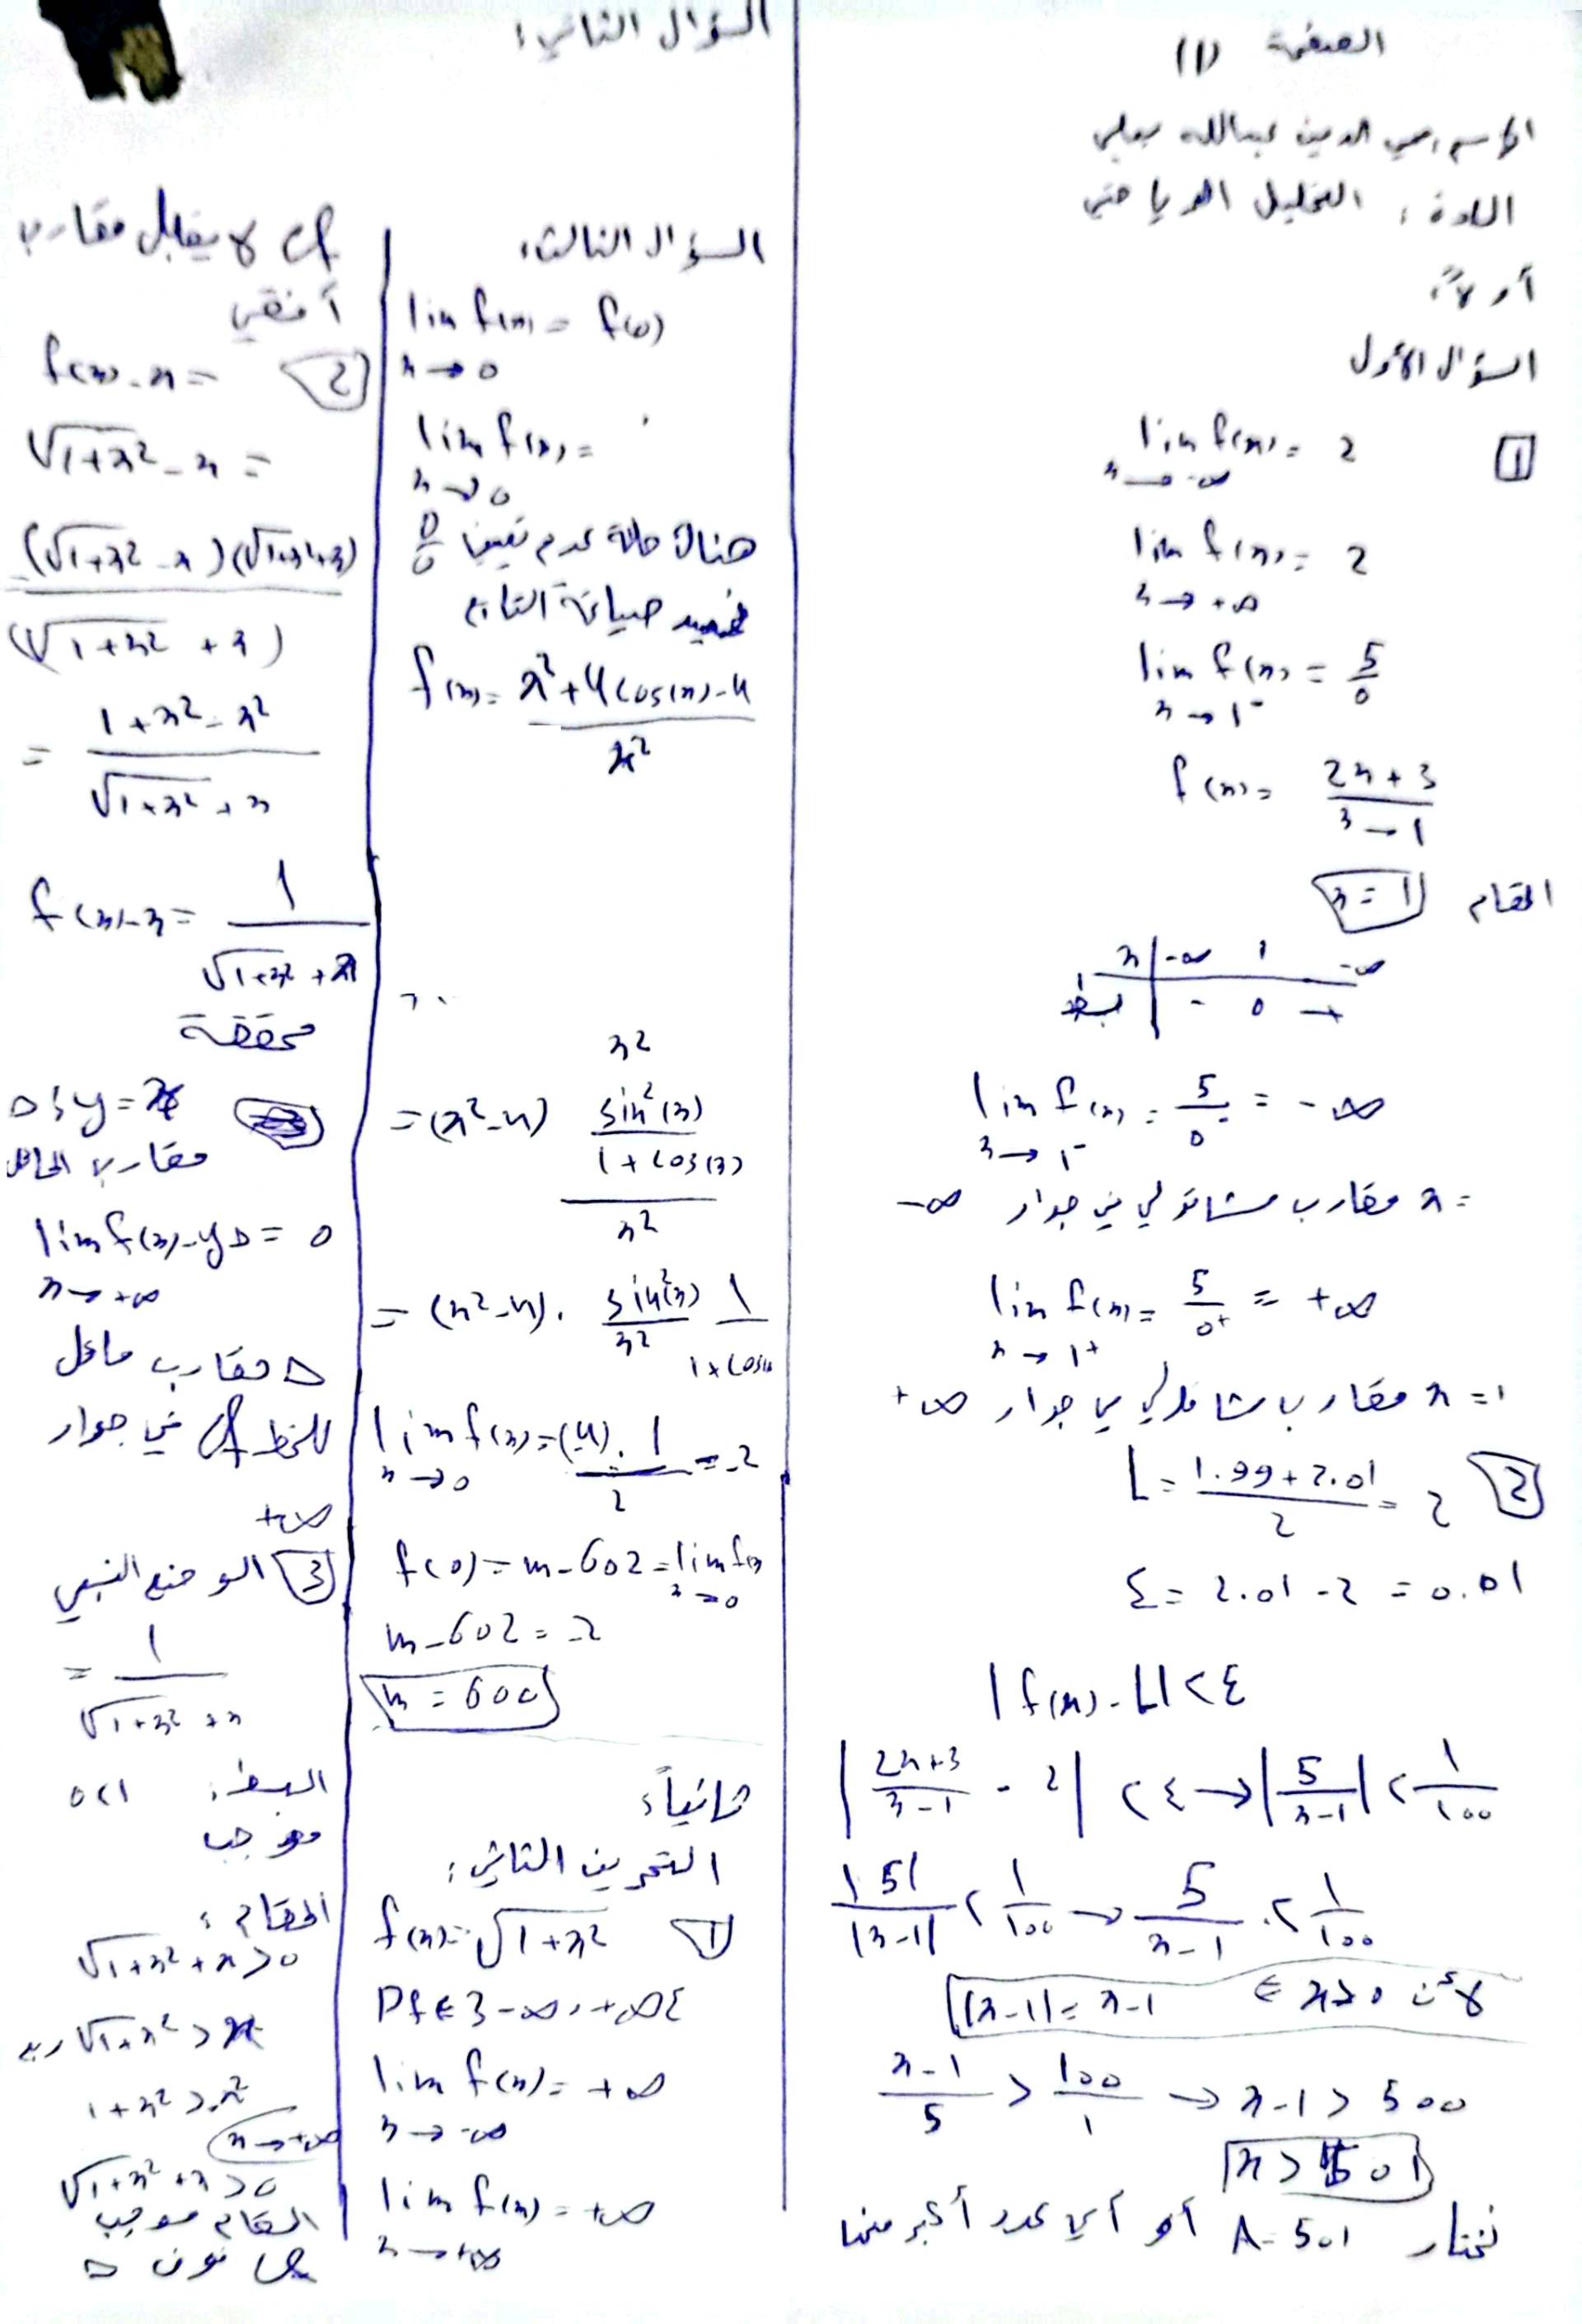 الصفحة (1)
الاسم: محي الدين عبدالله
المادة: التحليل الرياضي
أولاً:
السؤال الأول
1
lim f(x) = 2
x → -∞
lim f(x) = 2
x → +∞
lim f(x) = 5/0
x → 1⁻
f(x) = (2x + 3)/(x - 1)
المقام x = 1
x | -∞ 1 -∞
- 0 +
lim f(x) = 5/0⁻ = -∞
x → 1⁻
x = مقارب شاقولي في جوار -∞
lim f(x) = 5/0⁺ = +∞
x → 1⁺
x = 1 مقارب شاقولي في جوار +∞
2 L = (1.99 + 2.01)/2 = 2
ε = 2.01 - 2 = 0.01
|f(x) - L| < ε
|(2x+3)/(x-1) - 2| < ε → |5/(x-1)| < 1/100
|5|/|x-1| < 1/100 → 5/(x-1) < 1/100
لأن x>0 ∈ |x-1| = x-1
(x-1)/5 > 100/1 → x-1 > 500
x > 501
نختار A = 501 أو أي عدد أكبر منها
السؤال الثاني:
السؤال الثالث:
lim f(x) = f(0)
x → 0
lim f(x) =
x → 0
هناك حالة عدم تعيين 0/0
نعيد صياغة التابع
f(x) = (x² + 4cos(x) - 4)/x²
x²
= (x²-4) (sin²(x)/(1+cos(x)))/x²
= (x²-4) . sin²(x)/x² 1/(1+cosx)
lim f(x) = (-4) . 1/2 = -2
x → 0
f(0) = m - 602 = lim f(x)
x → 0
m - 602 = -2
m = 600
ثانياً:
التمرين الثاني:
1 f(x) = √(1+x²)
Df ∈ ]-∞, +∞[
lim f(x) = +∞
x → -∞
lim f(x) = +∞
x → +∞
cf لا يقابل مقارب
أفقي
2 f(x) - x =
√(1+x²) - x =
(√(1+x²) - x)(√(1+x²)+x)
/(√(1+x²) + x)
= (1+x²-x²)/(√(1+x²) + x)
f(x) - x = 1/(√(1+x²) + x)
محققة
Δ: y = x
مقارب المائل
lim f(x) - yΔ = 0
x → +∞
Δ مقارب مائل
للخط cf في جوار
+∞
3 الوضع النسبي
= 1/(√(1+x²) + x)
البسط: 0<1
موجب
المقام:
√(1+x²) + x > 0
√(1+x²) > x
1+x² > x²
x → +∞
√(1+x²) + x > 0
المقام موجب
cf فوق Δ